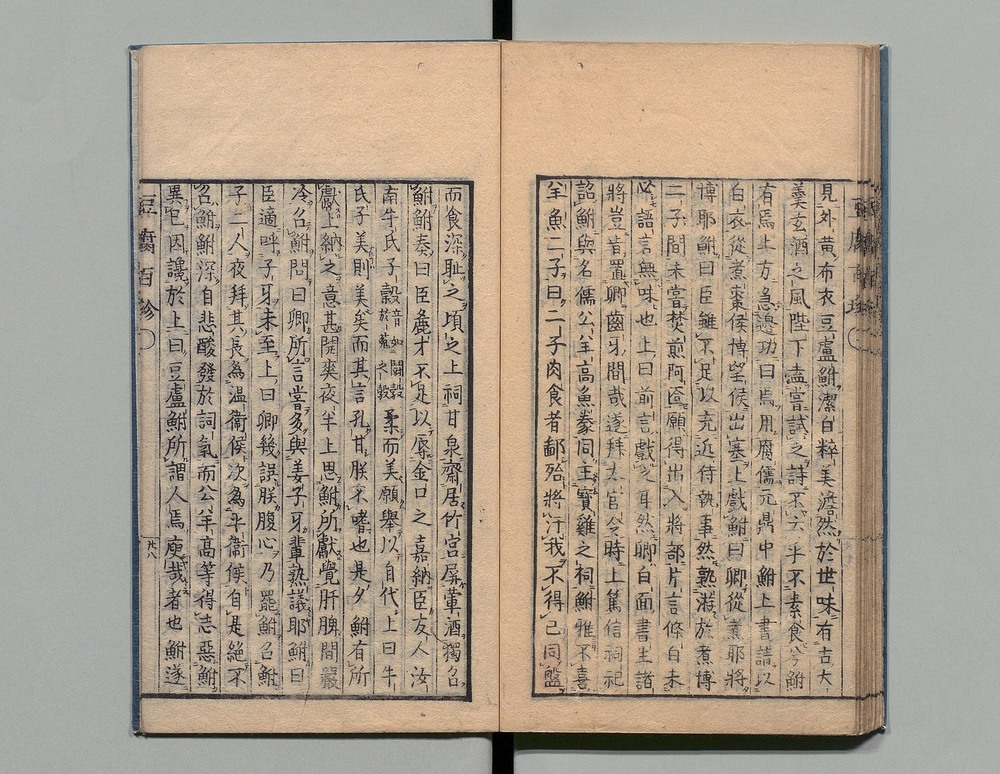 見外黄布衣豆盧鮒潔白粹美澹然於世味有古大
羹玄酒之風陛下盍嘗試之詩不云乎不素食兮鮒
有焉上方急邊功曰焉用腐儒元鼎中鮒上書請以
白衣從煮棗侯博望侯出塞上戲鮒曰卿從煮耶將
博耶鮒曰臣雖不足以充近侍執事然熟游於煮博
二子間未嘗焚煎阿匼願得出入將部片言條白未
語言無味也上曰前言戲之耳然卿白面書生諸
將豈肯置卿齒牙間哉遂拜太官令時上篤信祠祀
詔鮒與名儒公羊高魚豢同王寶雞之祠鮒雅不喜
羊魚二子曰二子肉食者鄙殆將汙我不得已同盤
而食深恥之頃之上祠甘泉齋居竹宮屏葷酒獨召
鮒鮒奏曰臣麁才不足以辱金口之嘉納臣友人汝
南牛氏子穀音如鬪穀於菟之穀柔而美願舉以自代上曰牛
氏子美則美矣而其言孔甘朕不嗜也是夕鮒有所
獻上納之意甚開爽夜半上思鮒所獻覺肝脾間嚴
冷召鮒問曰卿所言嘗多與姜子牙輩熟議耶鮒曰
臣適呼子牙未至上曰卿幾誤朕腹心乃罷鮒召鮒
子二人夜拜其長為溫衛侯次為平衛侯自是絶不
召鮒鮒深自悲酸發於詞氣而公羊高等得志惡鮒
異己因讒於上曰豆盧鮒所謂人焉廋哉者也鮒遂
豆腐百珍
廿八